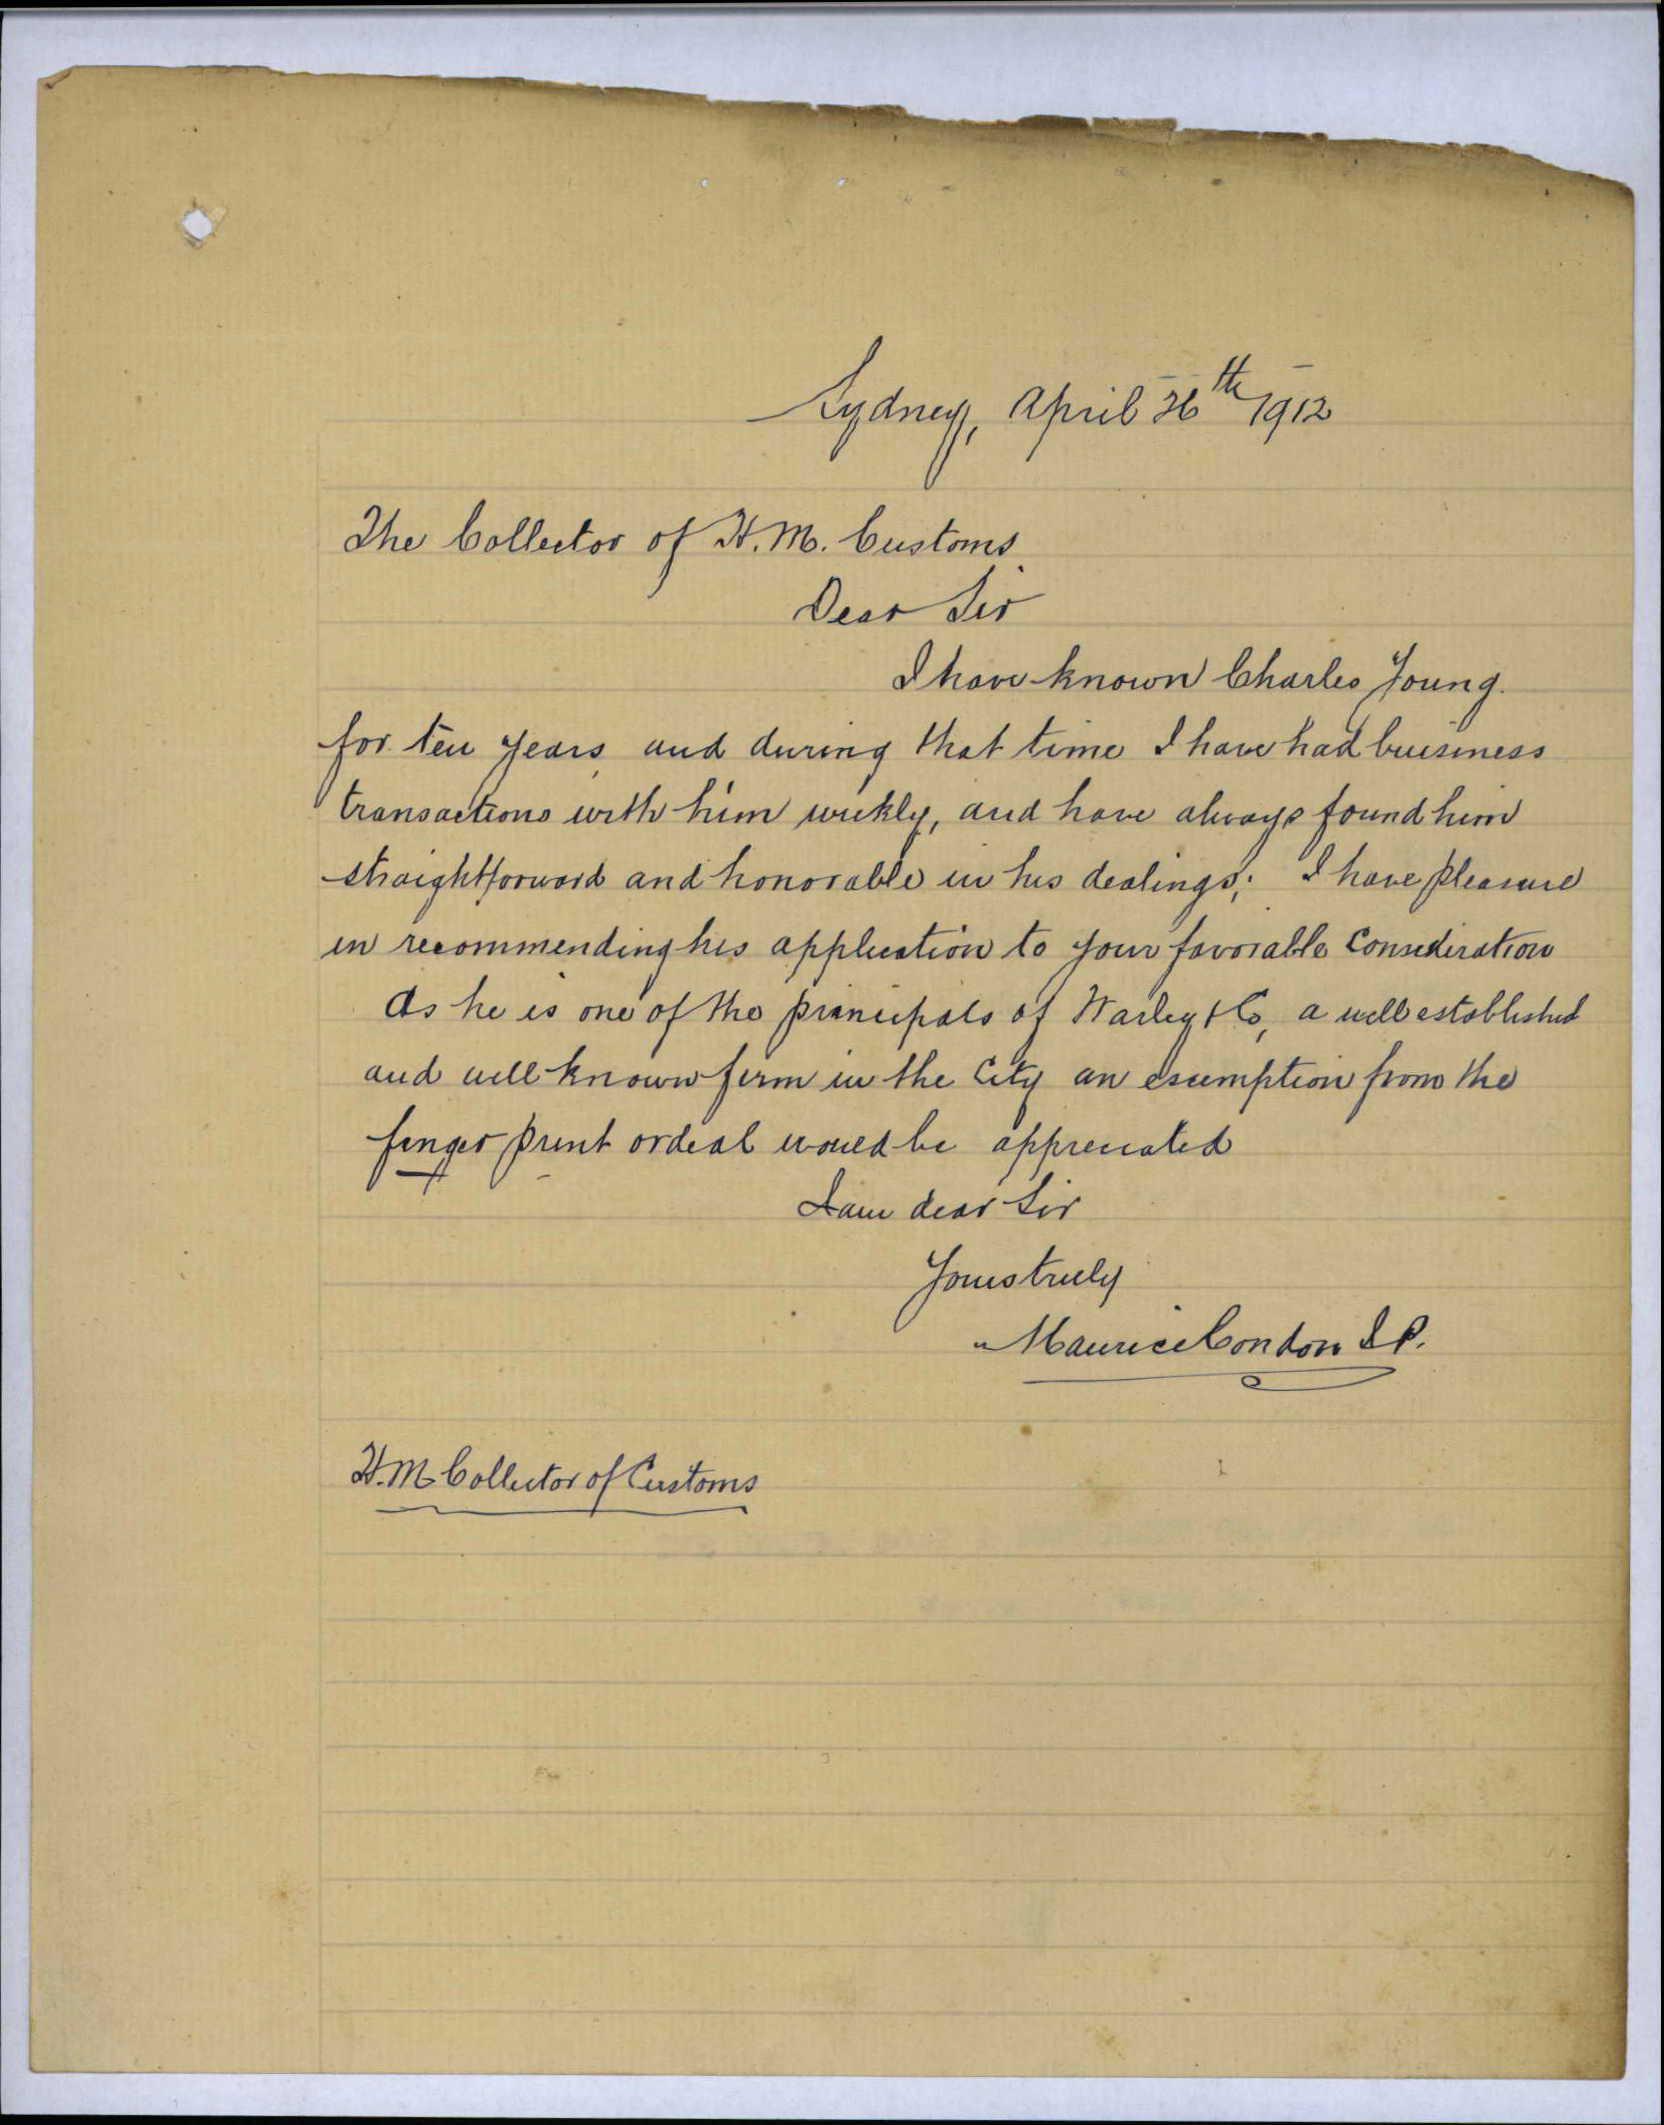 Sydney, April 26th 1912
The Collector of H.M. Customs
Dear Sir
I have known Charles Young.
for ten years and during that time I have had buisiness
transactions with him weekly, and have always found him
straightforward and honorable in his dealings; I have pleasure
in recommending his application to your favorable Consideration
As he is one of the principals of Warley & Co, a well established
and well known firm in the City an exemption from the
finger print ordeal would be appreciated
I am dear Sir
Yours truly
Maurice Condon J P.
H.M Collector of Customs